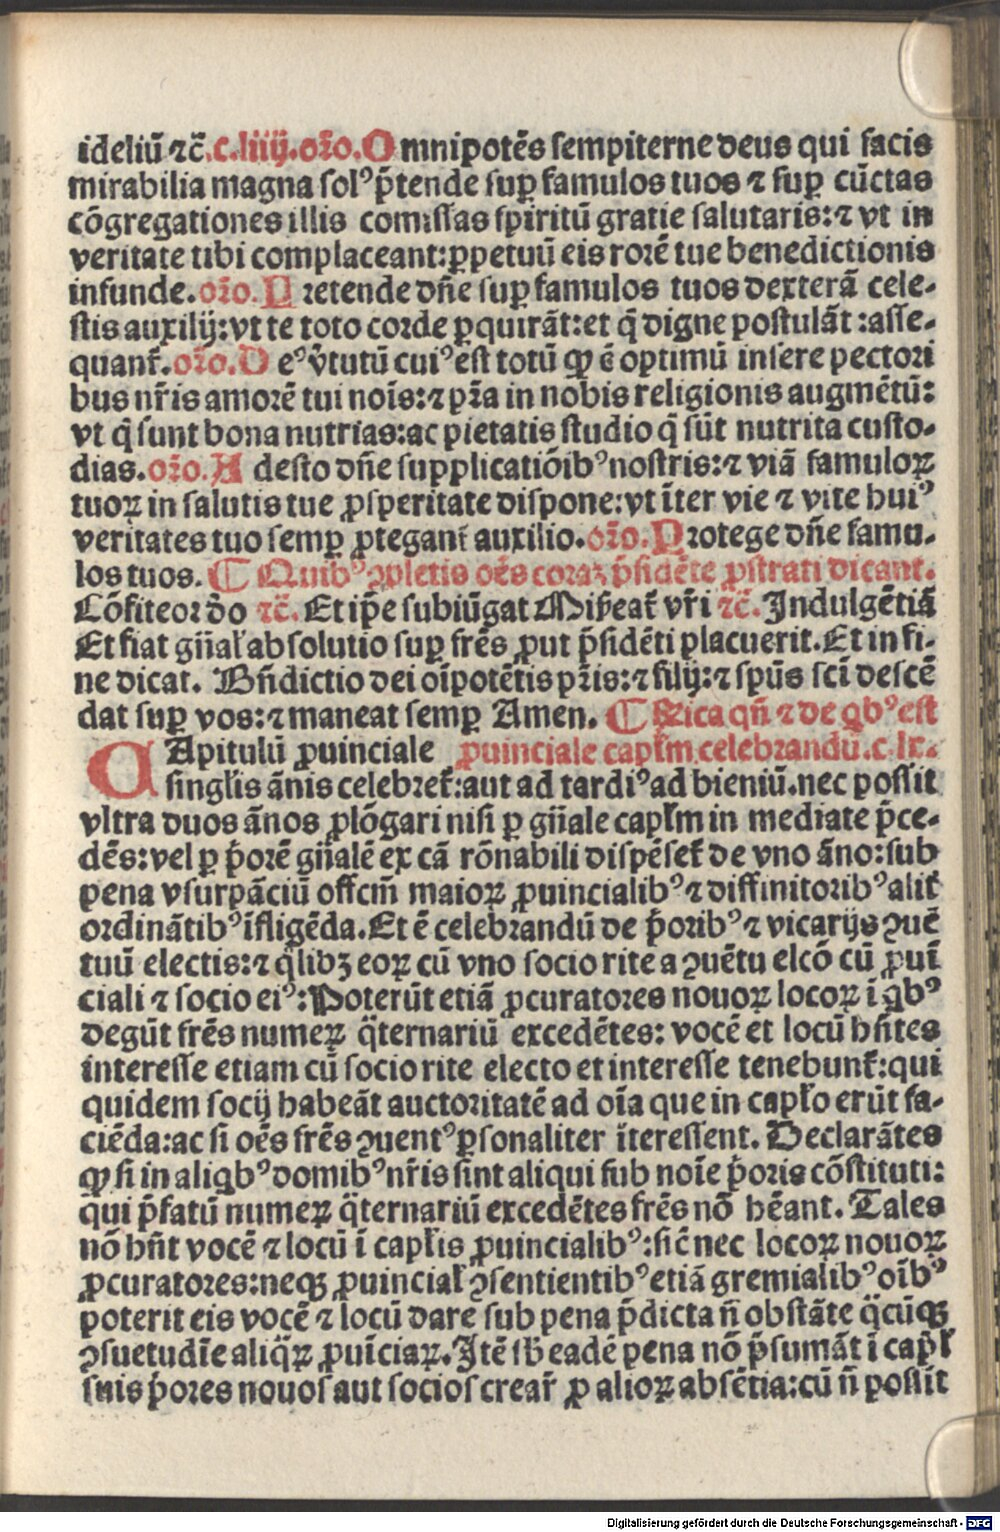 ideliū ⁊c̄.c.liiij.oꝛo. O mnipotēs sempiterne deus qui facis
mirabilia magna solꝰ p̄tende suꝑ famulos tuos ⁊ suꝑ cūctas
cōgregationes illis comissas spiritū gratie salutaris:⁊ vt in
veritate tibi complaceant:ꝑpetuū eis rorē tue benedictionis
infunde. oꝛo. P retende dn̄e suꝑ famulos tuos dexterā cele-
stis auxilij:vt te toto corde ꝑquirāt:et q̄ digne postulāt:asse-
quant̃. oꝛo. D eꝰ v̄tutū cuiꝰ est totū qꝫ ē optimū insere pectori
bus nr̄is amorē tui noīs:⁊ pꝛ̄a in nobis religionis augmētū:
vt q̄ sunt bona nutrias:ac pietatis studio q̄ sūt nutrita custo-
dias. oꝛo. A desto dn̄e supplicatiōibꝰ nostris:⁊ viā famuloꝝ
tuoꝝ in salutis tue ꝓsperitate dispone:vt īter vie ⁊ vite huiꝰ
veritates tuo semꝑ ꝓteganť auxilio. oꝛo. P rotege dn̄e famu-
los tuos. ¶ Quibꝰ ꝯpletis oēs coraꝫ p̄sidēte ꝓstrati dicant.
Cōfiteoꝛ dō ⁊c̄. Et ip̄e subiūgat Miẜeat̃ vr̄i ⁊c̄. Indulgētiā
Et fiat gn̄alꝭ absolutio suꝑ frēs ꝓut p̄sidēti placuerit. Et in fi-
ne dicat. Bn̄dictio dei oīpotētis pꝛ̄is:⁊ filij:⁊ spūs scī descē
dat suꝑ vos:⁊ maneat semꝑ Amen. ¶ Rꝫica qn̄ ⁊ de qbꝰ est
C Apitulū ꝓuinciale ꝓuinciale capl̄m celebrandū.c.lx.
singlis ānis celebꝛet̃:aut ad tardiꝰ ad bieniū.nec possit
vltra duos ānos ꝓlōgari nisi ꝑ gn̄ale capl̄m in mediate p̄ce-
dēs:vel ꝑ p̄oꝛē gn̄alē ex cā rōnabili dispēset̃ de vno āno:sub
pena vsurpāciū offcm̄ maioꝝ ꝓuincialibꝰ ⁊ diffinitoribꝰ alit̃
oꝛdinātibꝰ īfligēda. Et ē celebrandū de p̄oꝛibꝰ ⁊ vicarijs ꝯuē
tuū electis:⁊ qlibꝫ eoꝝ cū vno socio rite a ꝯuētu elcō cū ꝓuī
ciali ⁊ socio eiꝰ: Poterūt etiā ꝓcuratoꝛes nouoꝝ locoꝝ ī qbꝰ
degūt frēs numeꝝ q̄ternariū excedētes: vocē et locū hn̄tes
interesse etiam cū socio rite electo et interesse tenebunt̃:qui
quidem socij habeāt auctoꝛitatē ad oīa que in capl̄o erūt fa-
ciēda:ac si oēs frēs ꝯuentꝰ ꝑsonaliter īteressent. Declarātes
qꝫ si in aliqbꝰ domibꝰ nr̄is sint aliqui sub noīe p̄oꝛis cōstituti:
qui p̄fatū numeꝝ q̄ternariū excedētes frēs nō hēant. Tales
nō hn̄t vocē ⁊ locū ī capl̄is ꝓuincialibꝰ:sic̄ nec locoꝝ nouoꝝ
ꝓcuratoꝛes:neqꝫ ꝓuincialꝭ ꝯsentientibꝰ etiā gremialibꝰ oībꝰ
poterit eis vocē ⁊ locū dare sub pena p̄dicta n̄ obstāte q̄cūqꝫ
ꝯsuetudīe aliq̄ꝝ ꝓuīciaꝝ. Itē sb̄ eadē pena nō p̄sumāt ī capl̄
suis p̄oꝛes nouos aut socios crear̃ ꝓ alioꝝ absētia:cū n̄ possit
Digitalisierung gefördert durch die Deutsche Forschungsgemeinschaft - DFG